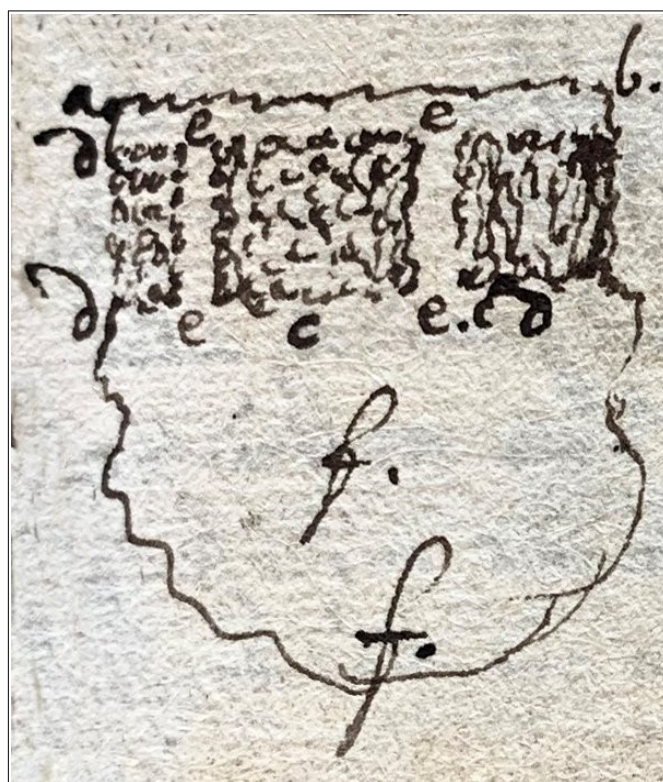 a b.
d e e
d e c e. d
f.
f.